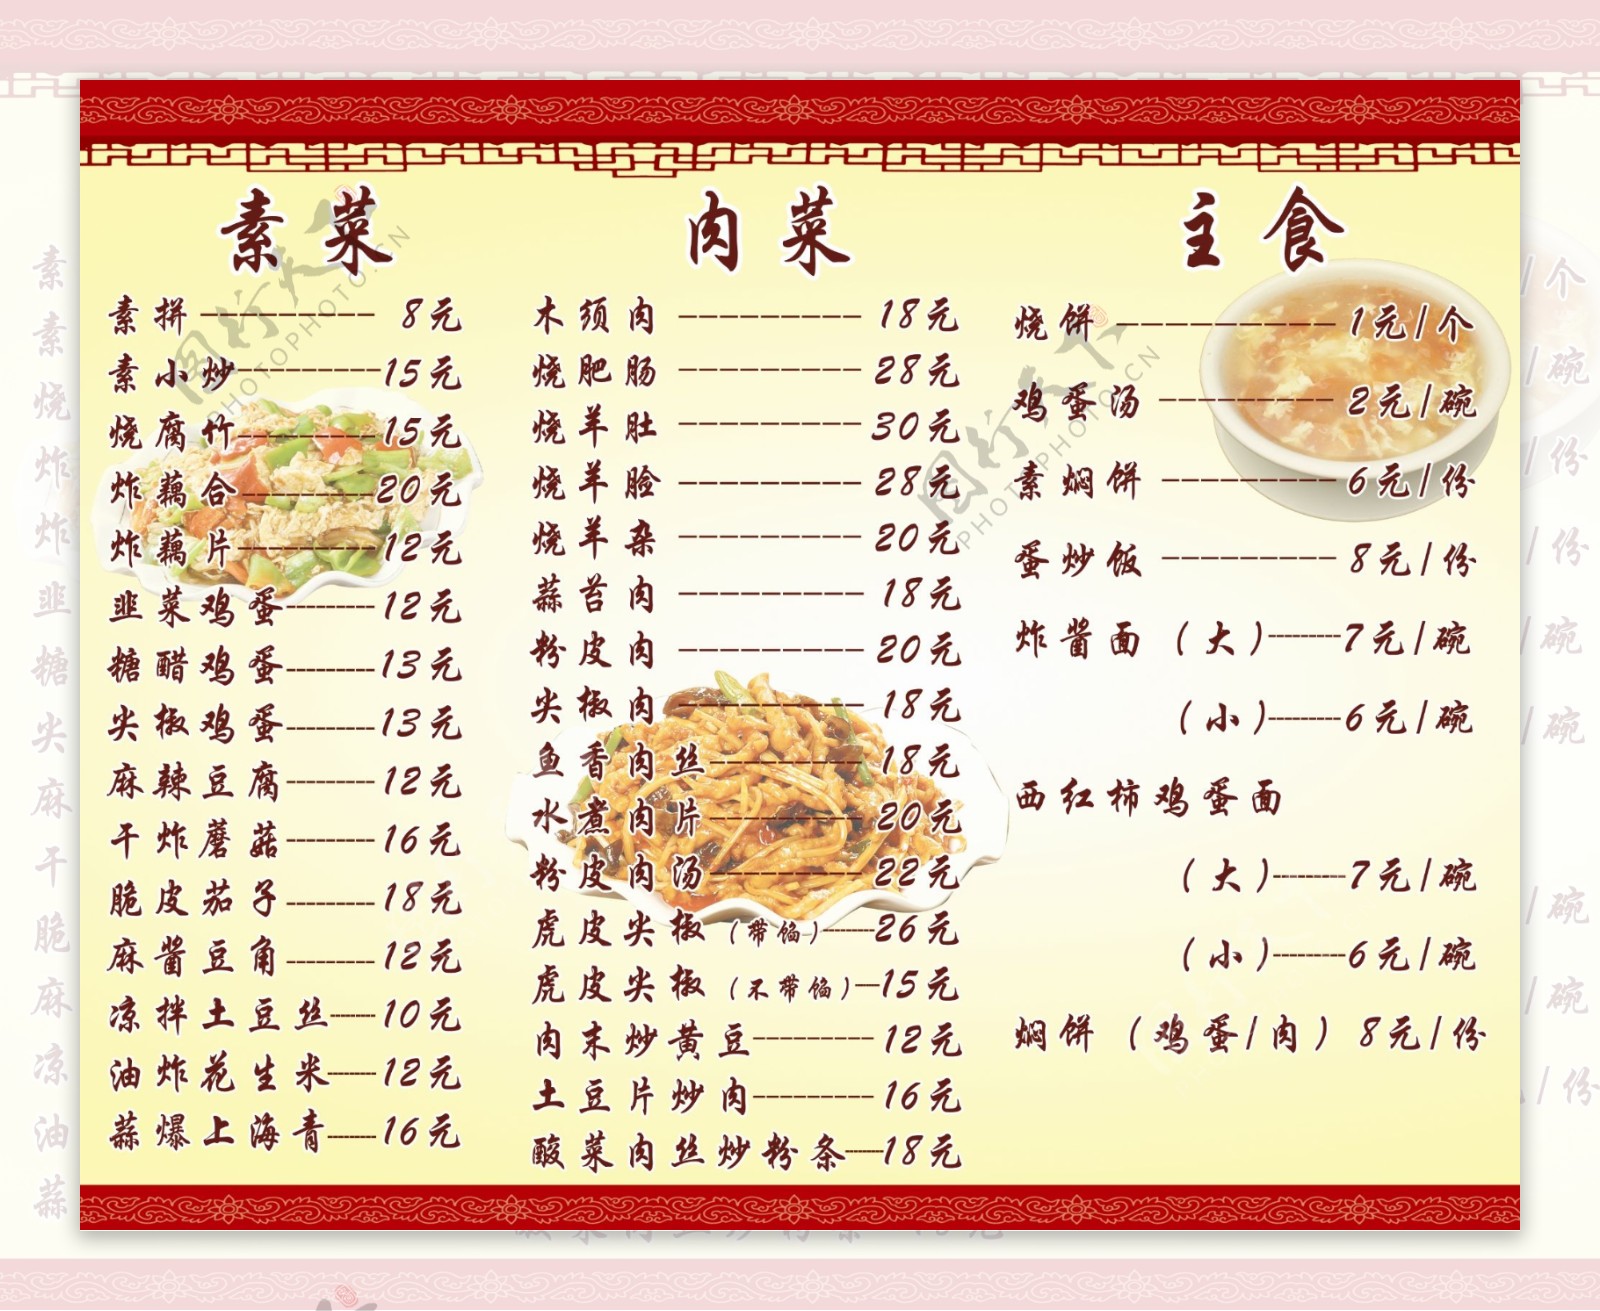 素菜
素拼 8元
素小炒 15元
烧腐竹 15元
炸藕合 20元
炸藕片 12元
韭菜鸡蛋 12元
糖醋鸡蛋 13元
尖椒鸡蛋 13元
麻辣豆腐 12元
干炸蘑菇 16元
脆皮茄子 18元
麻酱豆角 12元
凉拌土豆丝 10元
油炸花生米 12元
蒜爆上海青 16元
肉菜
木须肉 18元
烧肥肠 28元
烧羊肚 30元
烧羊脸 28元
烧羊杂 20元
蒜苔肉 18元
粉皮肉 20元
尖椒肉 18元
鱼香肉丝 18元
水煮肉片 20元
粉皮肉汤 22元
虎皮尖椒（带馅） 26元
虎皮尖椒（不带馅） 15元
肉末炒黄豆 12元
土豆片炒肉 16元
酸菜肉丝炒粉条 18元
主食
烧饼 1元/个
鸡蛋汤 2元/碗
素焖饼 6元/份
蛋炒饭 8元/份
炸酱面（大） 7元/碗
（小） 6元/碗
西红柿鸡蛋面
（大） 7元/碗
（小） 6元/碗
焖饼（鸡蛋/肉）8元/份
图行天下
PHOTOPHOTO.CN
图行天下
PHOTOPHOTO.CN